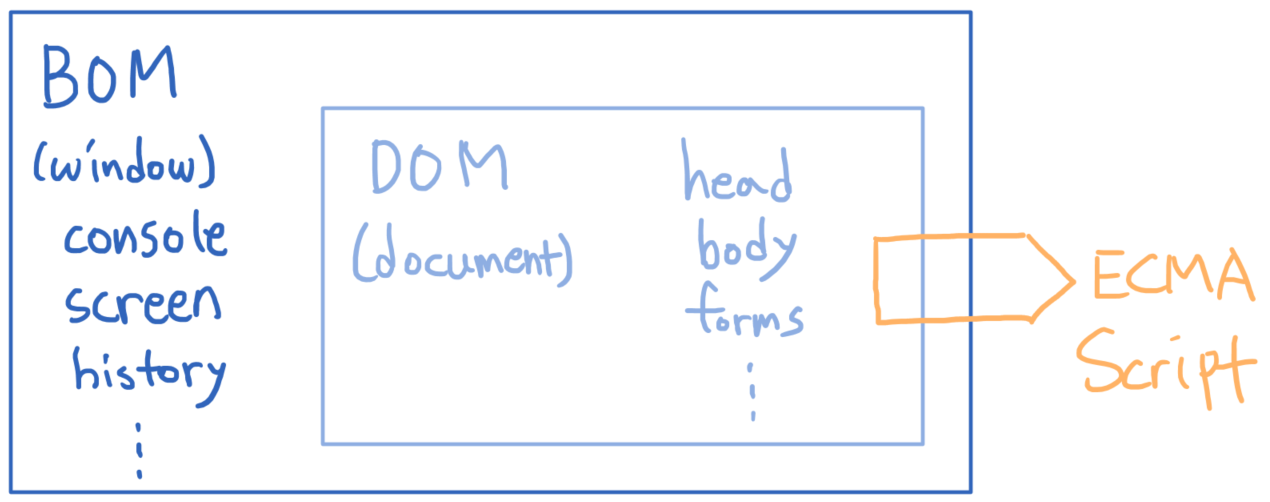 BOM
(window)
console
screen
history
DOM
(document)
head
body
forms
ECMA
Script